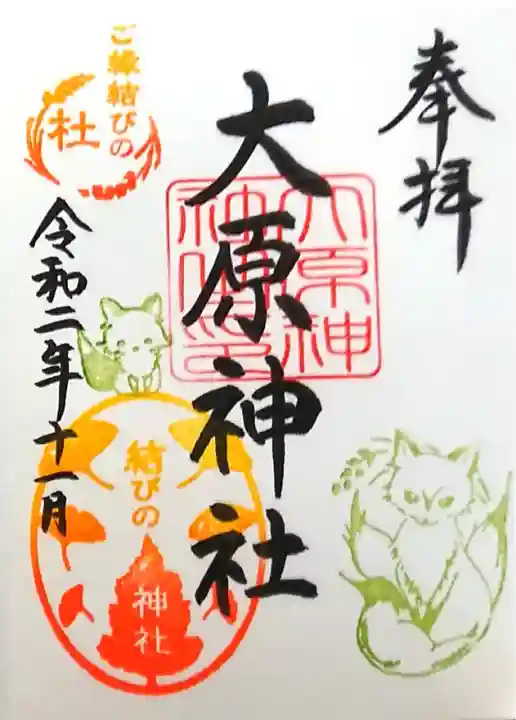 奉拝
大原神社
大原神社之印
ご縁結びの
杜
令和二年十一月
結びの
神社